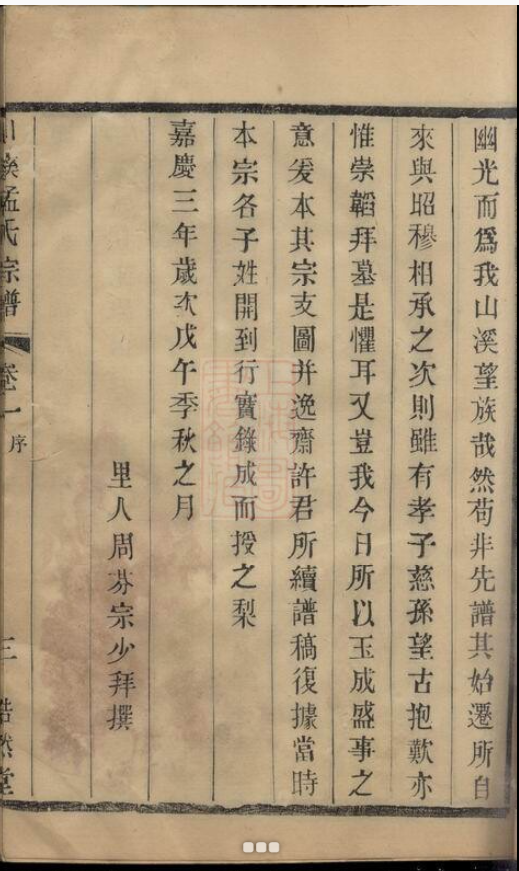 幽光而爲我山溪望族哉然苟非先譜其始遷所自
來與昭穆相承之次則雖有孝子慈孫望古抱歎亦
惟崇韜拜墓是懼耳又豈我今日所以玉成盛事之
意爰本其宗支圖并逸齋許君所續譜稿復據當時
本宗各子姓開到行實錄成而授之梨
嘉慶三年歲次戊午季秋之月
里人周芬宗少拜撰
溪孟氏宗譜 卷一 序 三 浩然堂